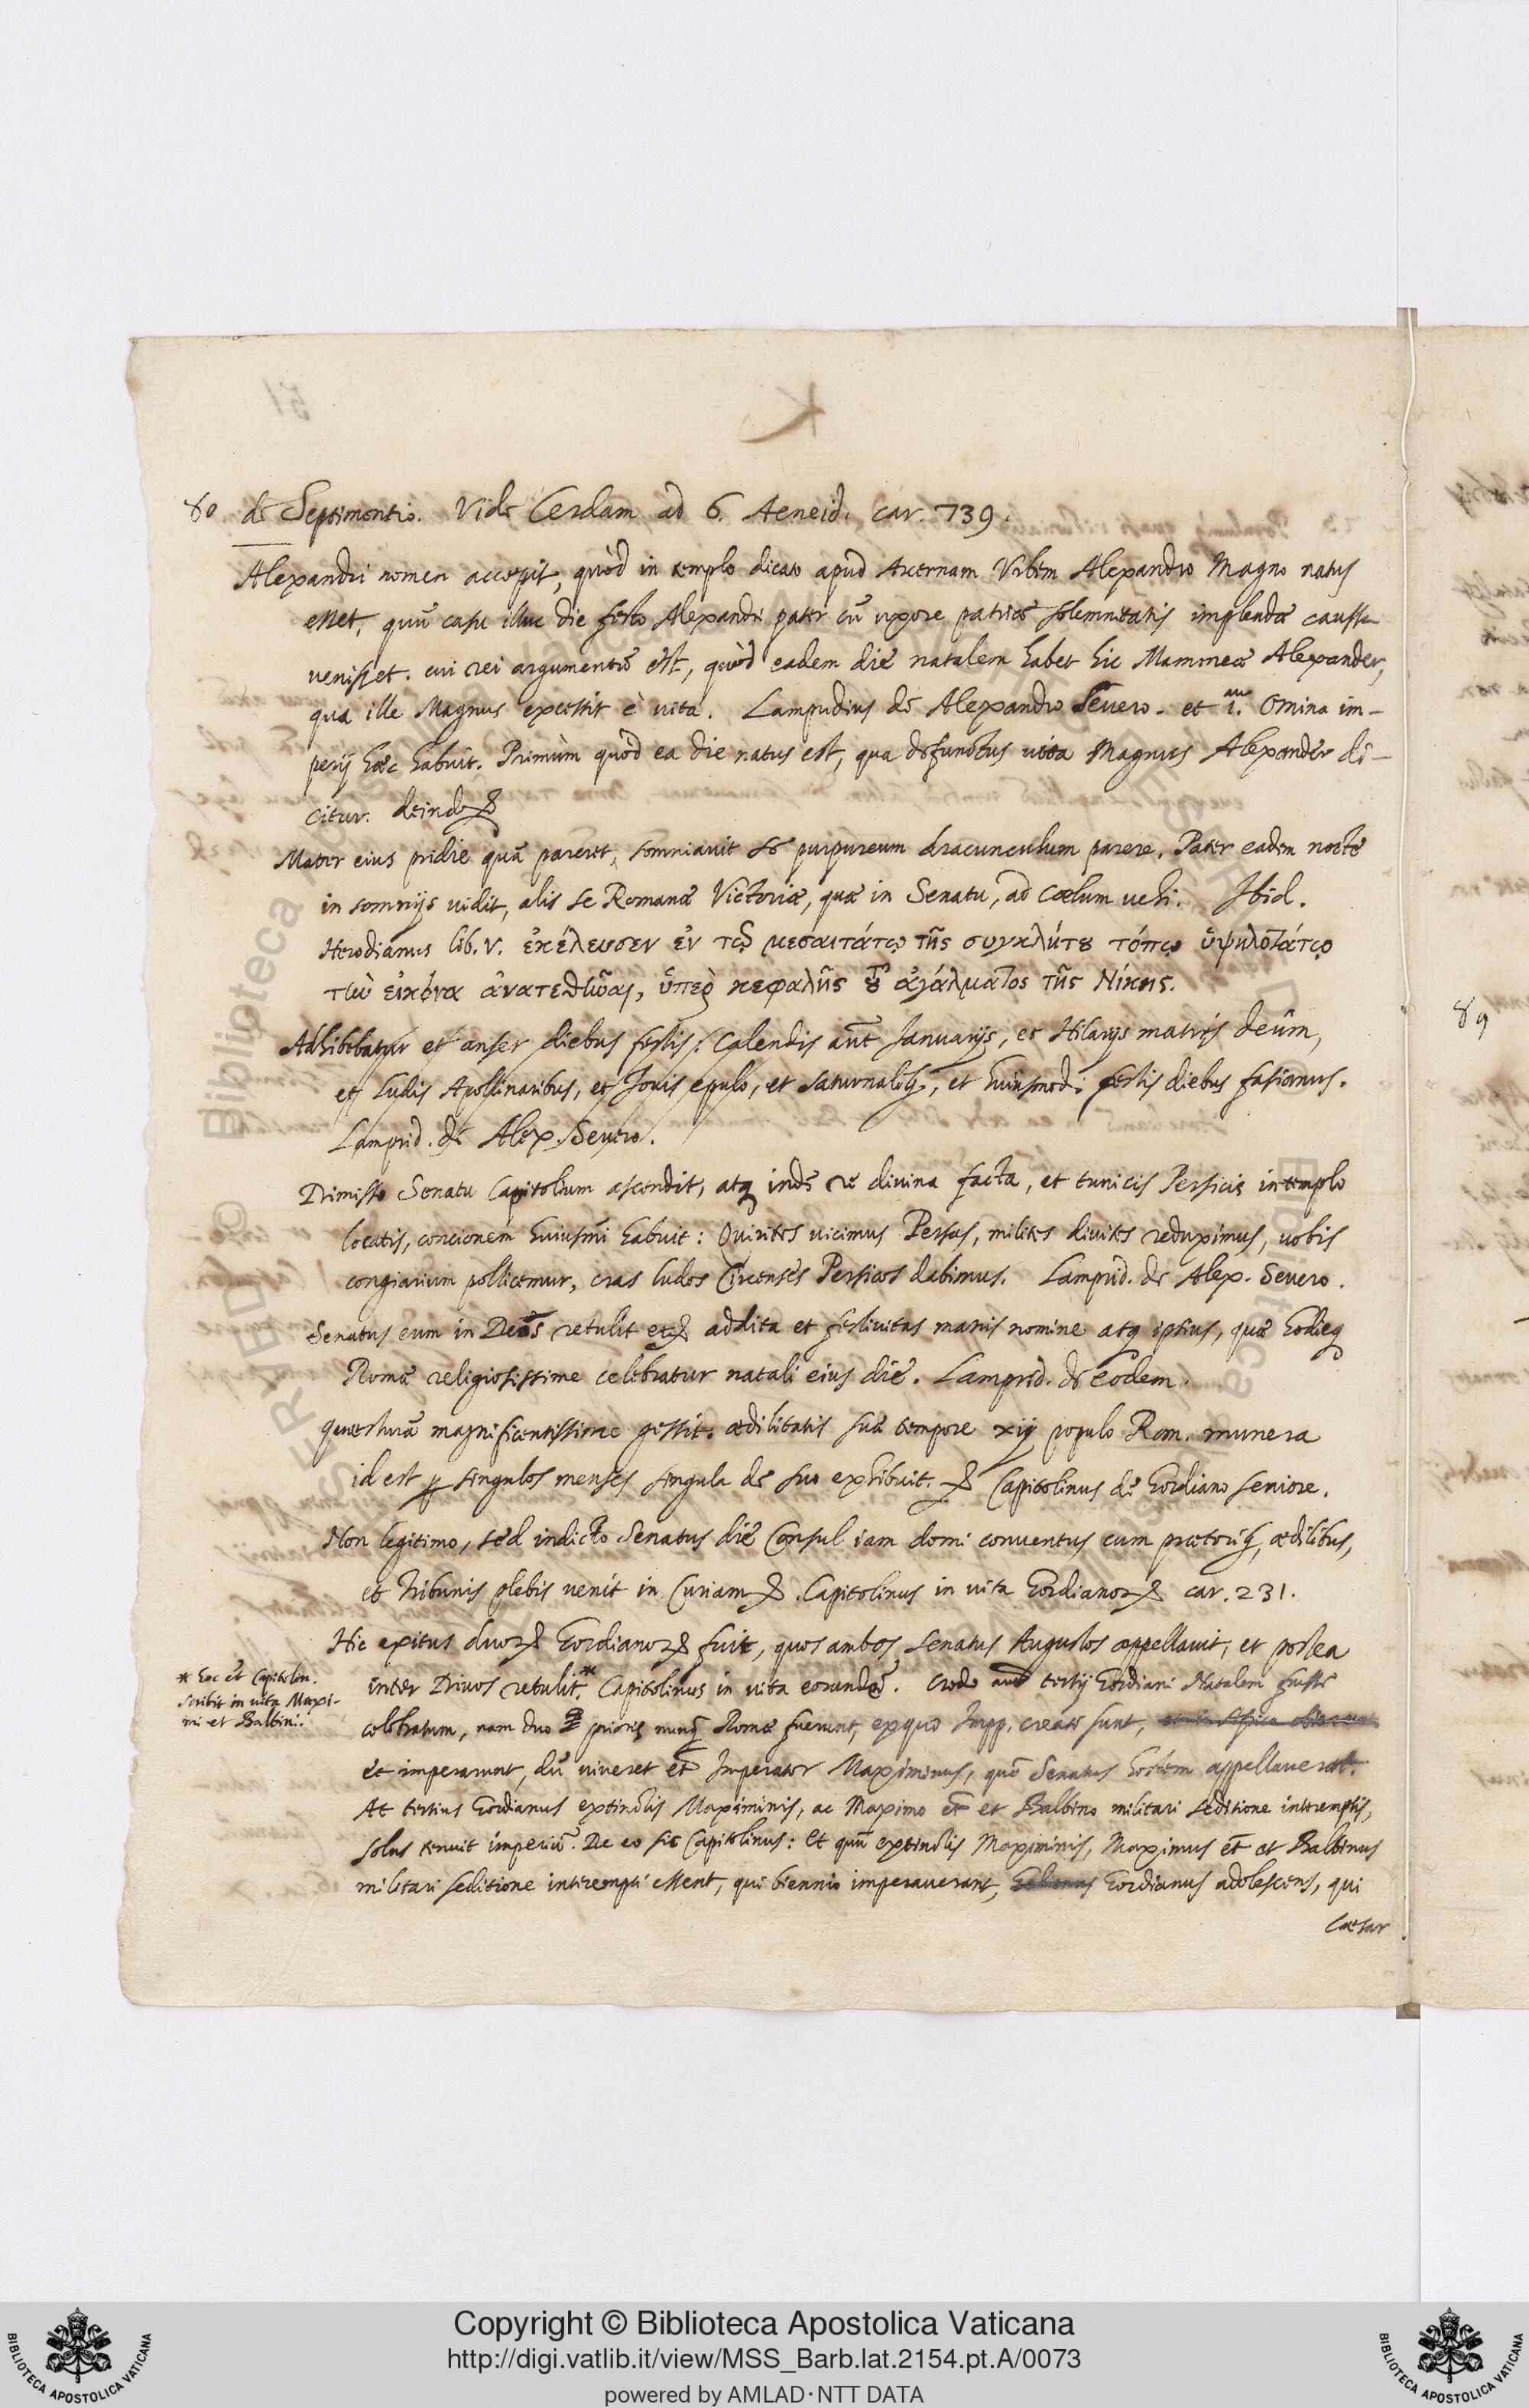 80 de Septimontio. Vide Cerdam ad 6. Aeneid. car. 739.
Alexandri nomen accepit, quòd in templo dicato apud Arcenam Vrbem Alexandro Magno natus
esset, quũ casu illuc die festo Alexandri pater cũ uxore patriæ solemnitatis implendæ caussa
venisset. cui rei argumentũ est, quòd eadem die natalem habet hic Mammeæ Alexander,
qua ille Magnus excessit è vita. Lampridius de Alexandro Seuero. et Omina im-
perij hæc habuit. Primùm quòd ea die natus est, qua defunctus vita Magnus Alexander di-
citur. deinde
Mater eius pridie quã pareret, somniauit se purpureum dracunculum parere. Pater eadem nocte
in somnijs vidit, alis se Romanæ Victoriæ, quæ in Senatu, ad cœlum vehi. Ibid.
Herodianus lib. V. ἐκέλευσεν ἐν τῷ μεσαιτάτῳ τῆς συγκλήτȣ τόπῳ ὑψηλοτάτῳ
τὼ εἰκόνα ἀνατεθῶαι, ὕπερ κεφαλῆς τȣ͂ ἀγάλματος τῆς Νίκης.
Adhibebatur et anser diebus festis: Calendis aũt Januarijs, et Hilarijs matris deûm,
et ludis Apollinaribus, et Jouis epulo, et Saturnalib9, et huiusmodi festis diebus fasianus.
Lamprid. de Alex. Seuero.
Dimisso Senatu Capitolium ascendit, atq inde re diuina facta, et tunicis Persicis in templo
locatis, concionem huiusmi habuit: Quirites vicimus Persas, milites diuites reduximus, vobis
congiarium pollicemur, cras ludos Circenses Persicos dabimus. Lamprid. de Alex. Seuero.
Senatus eum in Deos retulit addita et festiuitas matris nomine atq ipsius, quæ hodieq
Romæ religiosissime celebratur natali eius die. Lamprid. de eodem.
quæsturã magnificentissime gessit. ædilitatis suæ tempore xij populo Rom. munera
id est ꝑ singulos menses singula de suo exhibuit. Capitolinus de Gordiano seniore.
Non legitimo, sed indicto Senatus die Consul iam domi conuentus cum prætorib9, ædilibus,
et tribunis plebis venit in Curiam. Capitolinus in vita Gordianoꝝ car. 231.
Hic exitus duoꝝ Gordianoꝝ fuit, quos ambos Senatus Augustos appellauit, et postea
inter Diuos retulit.* Capitolinus in vita eorundẽ. Credo tertij Gordiani Natalem fuisse
* hoc et Capitolin.
scribit in vita Maxi-
mi et Balbini.
celebratum, nam duo priores nunq̃ Romæ fuerunt, exquo Impp. creati sunt,
et imperarunt, dũ viveret Imperator Maximinus, quẽ Senatus hostem appellauerat.
At tertius Gordianus extinctis Maximinis, ac Maximo et̃ et Balbino militari seditione interemptis,
solus tenuit imperiũ. De eo sic Capitolinus: Et quũ extinctis Maximinis, Maximus et̃ et Balbinus
militari seditione interempti essent, qui biennio imperauerant, Gordianus adolescens, qui
Cæsar
89
Copyright © Biblioteca Apostolica Vaticana
http://digi.vatlib.it/view/MSS_Barb.lat.2154.pt.A/0073
powered by AMLAD·NTT DATA
BIBLIOTECA APOSTOLICA VATICANA
BIBLIOTECA APOSTOLICA VATICANA